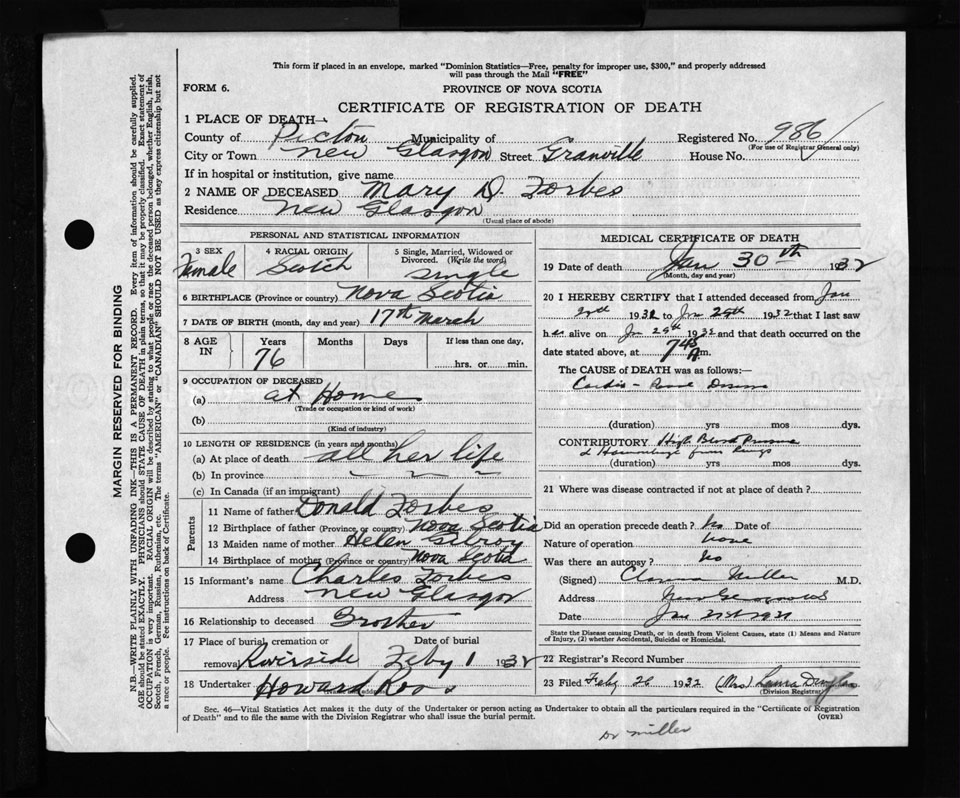 This form if placed in an envelope, marked "Dominion Statistics—Free, penalty for improper use, $300," and properly addressed
will pass through the Mail "FREE"
FORM 6.
PROVINCE OF NOVA SCOTIA
CERTIFICATE OF REGISTRATION OF DEATH
1 PLACE OF DEATH—
County of Pictou Municipality of Registered No. 986
(For use of Registrar General only)
City or Town New Glasgow Street Granville House No.
If in hospital or institution, give name
2 NAME OF DECEASED Mary D. Forbes
Residence New Glasgow
(Usual place of abode)
PERSONAL AND STATISTICAL INFORMATION
3 SEX Female
4 RACIAL ORIGIN Scotch
5 Single, Married, Widowed or Divorced. (Write the word) Single
6 BIRTHPLACE (Province or country) Nova Scotia
7 DATE OF BIRTH (month, day and year) 17th March
8 AGE IN Years 76 Months Days If less than one day, hrs. or min.
9 OCCUPATION OF DECEASED
(a) at Home
(Trade or occupation or kind of work)
(b)
(Kind of industry)
10 LENGTH OF RESIDENCE (in years and months)
(a) At place of death all her life
(b) In province " " "
(c) In Canada (if an immigrant)
Parents
11 Name of father Donald Forbes
12 Birthplace of father (Province or country) Nova Scotia
13 Maiden name of mother Helen Gilroy
14 Birthplace of mother (Province or country) Nova Scotia
15 Informant's name Charles Forbes
Address New Glasgow
16 Relationship to deceased Brother
17 Place of burial, cremation or removal Riverside Date of burial Feby 1 1932
18 Undertaker Howard Roo
MEDICAL CERTIFICATE OF DEATH
19 Date of death Jan 30th 1932
(Month, day and year)
20 I HEREBY CERTIFY that I attended deceased from Jan
1932 to Jan 29th 1932 that I last saw
h er alive on Jan 29th 1932 and that death occurred on the
date stated above, at 7 45 A m.
The CAUSE of DEATH was as follows:—
(duration) yrs mos dys.
CONTRIBUTORY High Blood Pressure
& Haemorrhage from Lungs
(duration) yrs mos dys.
21 Where was disease contracted if not at place of death?
Did an operation precede death? No Date of
Nature of operation none
Was there an autopsy? No
(Signed) Miller M.D.
Address New Glasgow
Date Jan
State the Disease causing Death, or in death from Violent Causes, state (1) Means and Nature
of Injury, (2) whether Accidental, Suicidal or Homicidal.
22 Registrar's Record Number
23 Filed Feby 26 1932 (Mrs) Laura Douglas
(Division Registrar)
Sec. 46—Vital Statistics Act makes it the duty of the Undertaker or person acting as Undertaker to obtain all the particulars required in the "Certificate of Registration
of Death" and to file the same with the Division Registrar who shall issue the burial permit.
(OVER)
Dr Miller
MARGIN RESERVED FOR BINDING
N.B.—WRITE PLAINLY WITH UNFADING INK—THIS IS A PERMANENT RECORD. Every item of information should be carefully supplied.
AGE should be stated EXACTLY. PHYSICIANS should STATE CAUSE OF DEATH in plain terms, so that it may be properly classified. Exact statement of
OCCUPATION is very important. RACIAL ORIGIN will be described by stating to what people or race the deceased person belonged, whether English, Irish,
Scotch, French, German, Russian, Ruthenian, etc. The terms "AMERICAN" or "CANADIAN" SHOULD NOT BE USED as they express citizenship but not
a race or people. See instructions on back of Certificate.